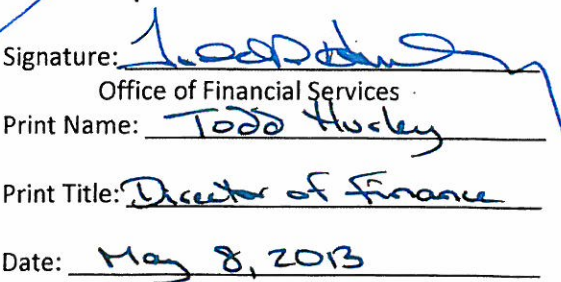 Signature:
Office of Financial Services
Print Name: Todd
Print Title: Director of Finance
Date: May 8, 2013